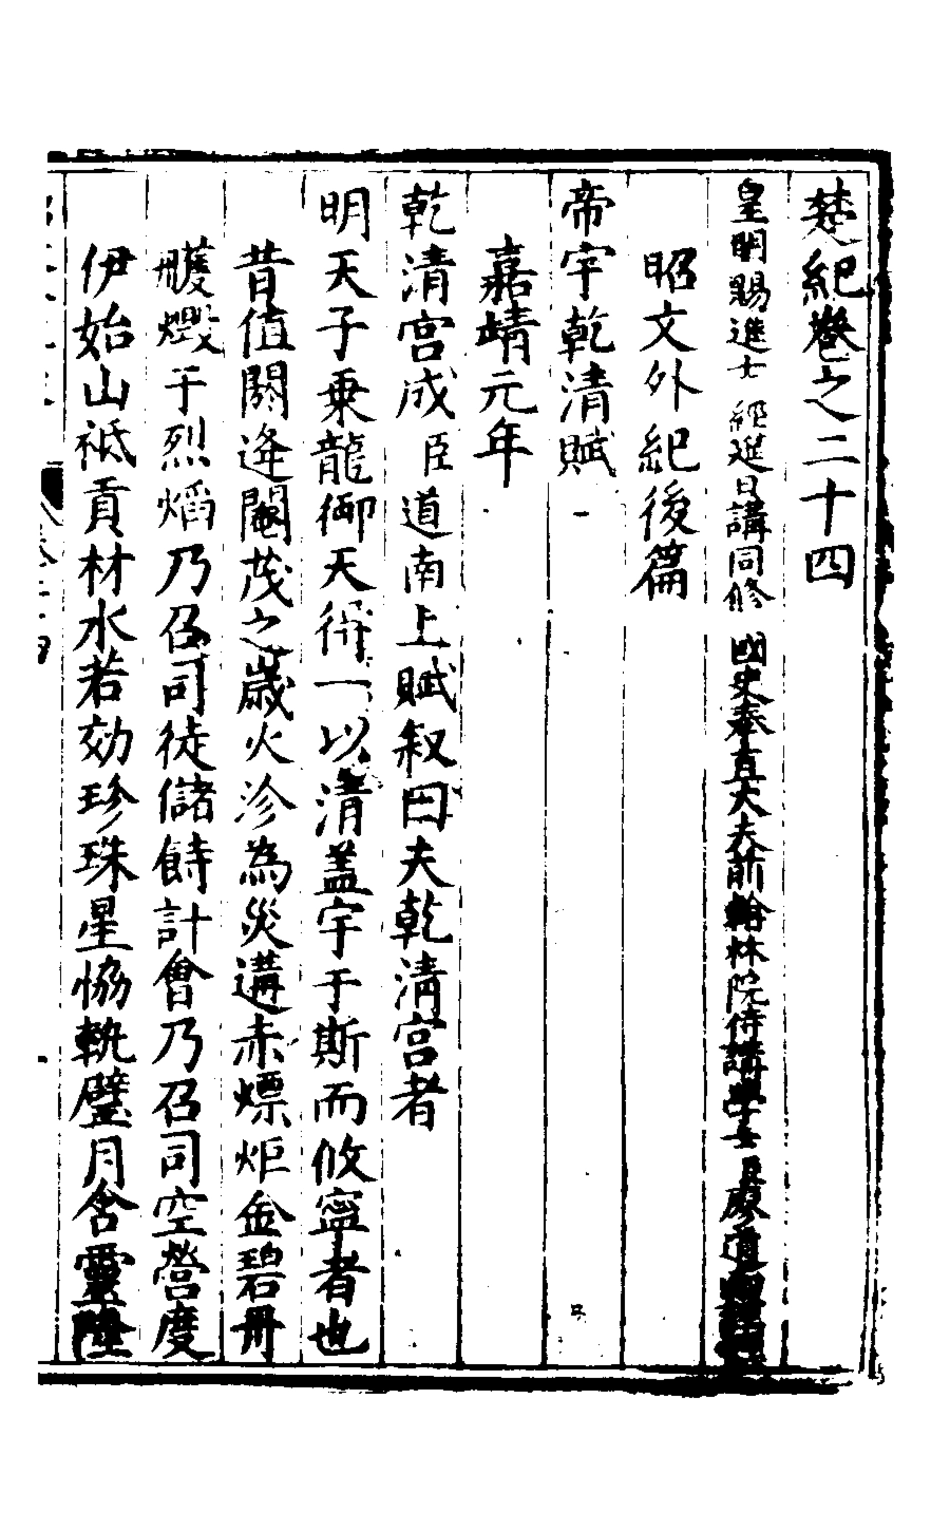 楚紀卷之二十四
皇明賜進士 經筵日講同修 國史奉直大夫前翰林院侍講學士臣廖道南
昭文外紀後篇
帝宇乾清賦
嘉靖元年
乾清宮成臣道南上賦叙曰夫乾清宮者
明天子乘龍御天得一以清蓋宇于斯而攸寧者也
昔值閼逢閹茂之歲火沴為災遘赤熛炬金碧冊
艧燬于烈熖乃召司徒儲餙計會乃召司空營度
伊始山祇貢材水若効珍珠星恊軌璧月含靈隆